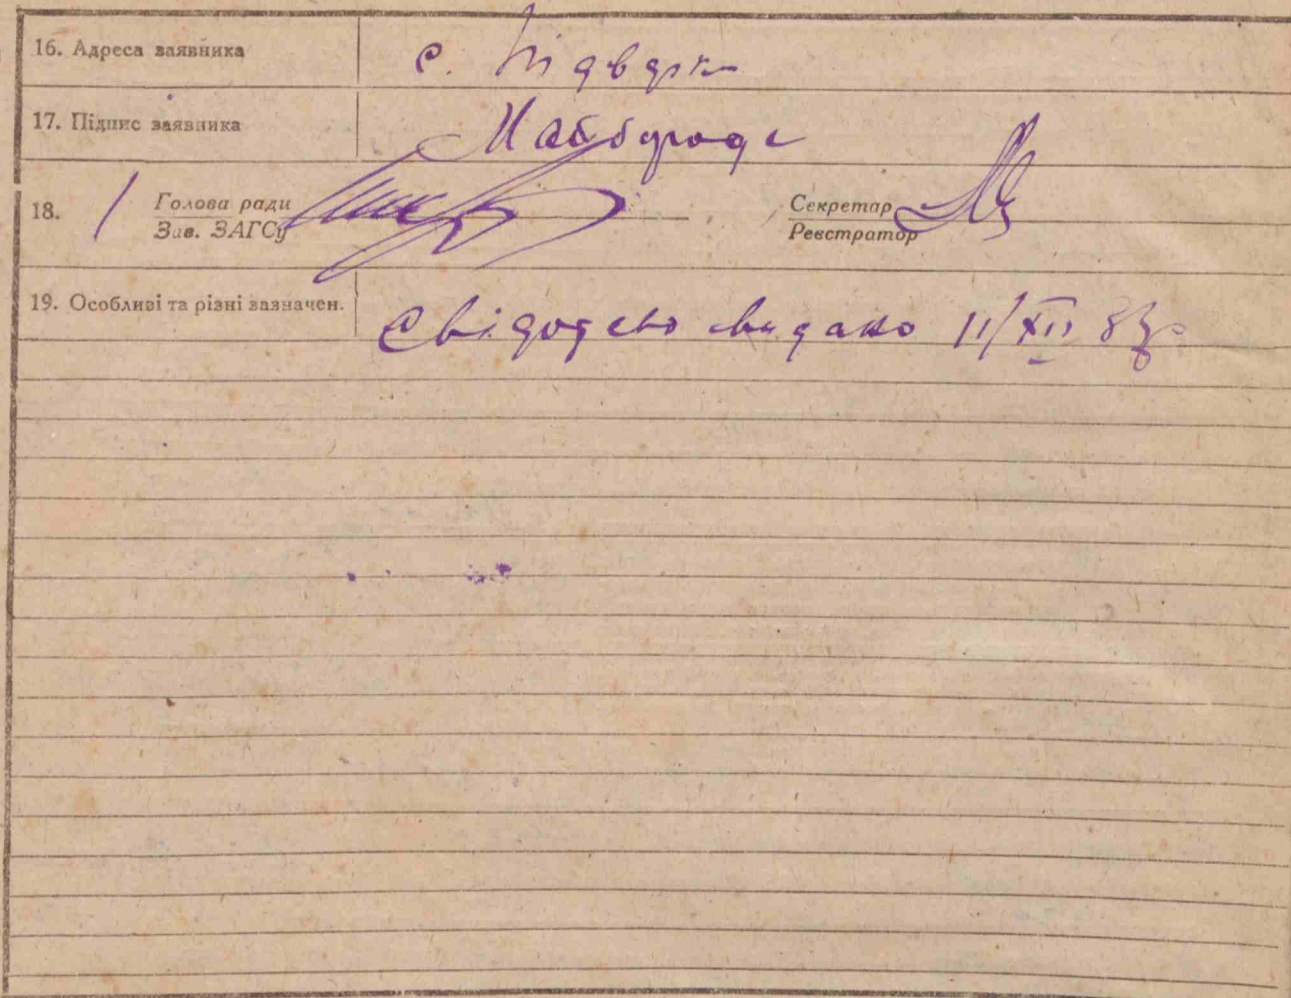 16. Адреса заявника с. Підварки
17. Підпис заявника Майборода
18. Голова ради
Зав. ЗАГСу
Секретар
Реєстратор
19. Особливі та різні зазначен. видано 11/XII